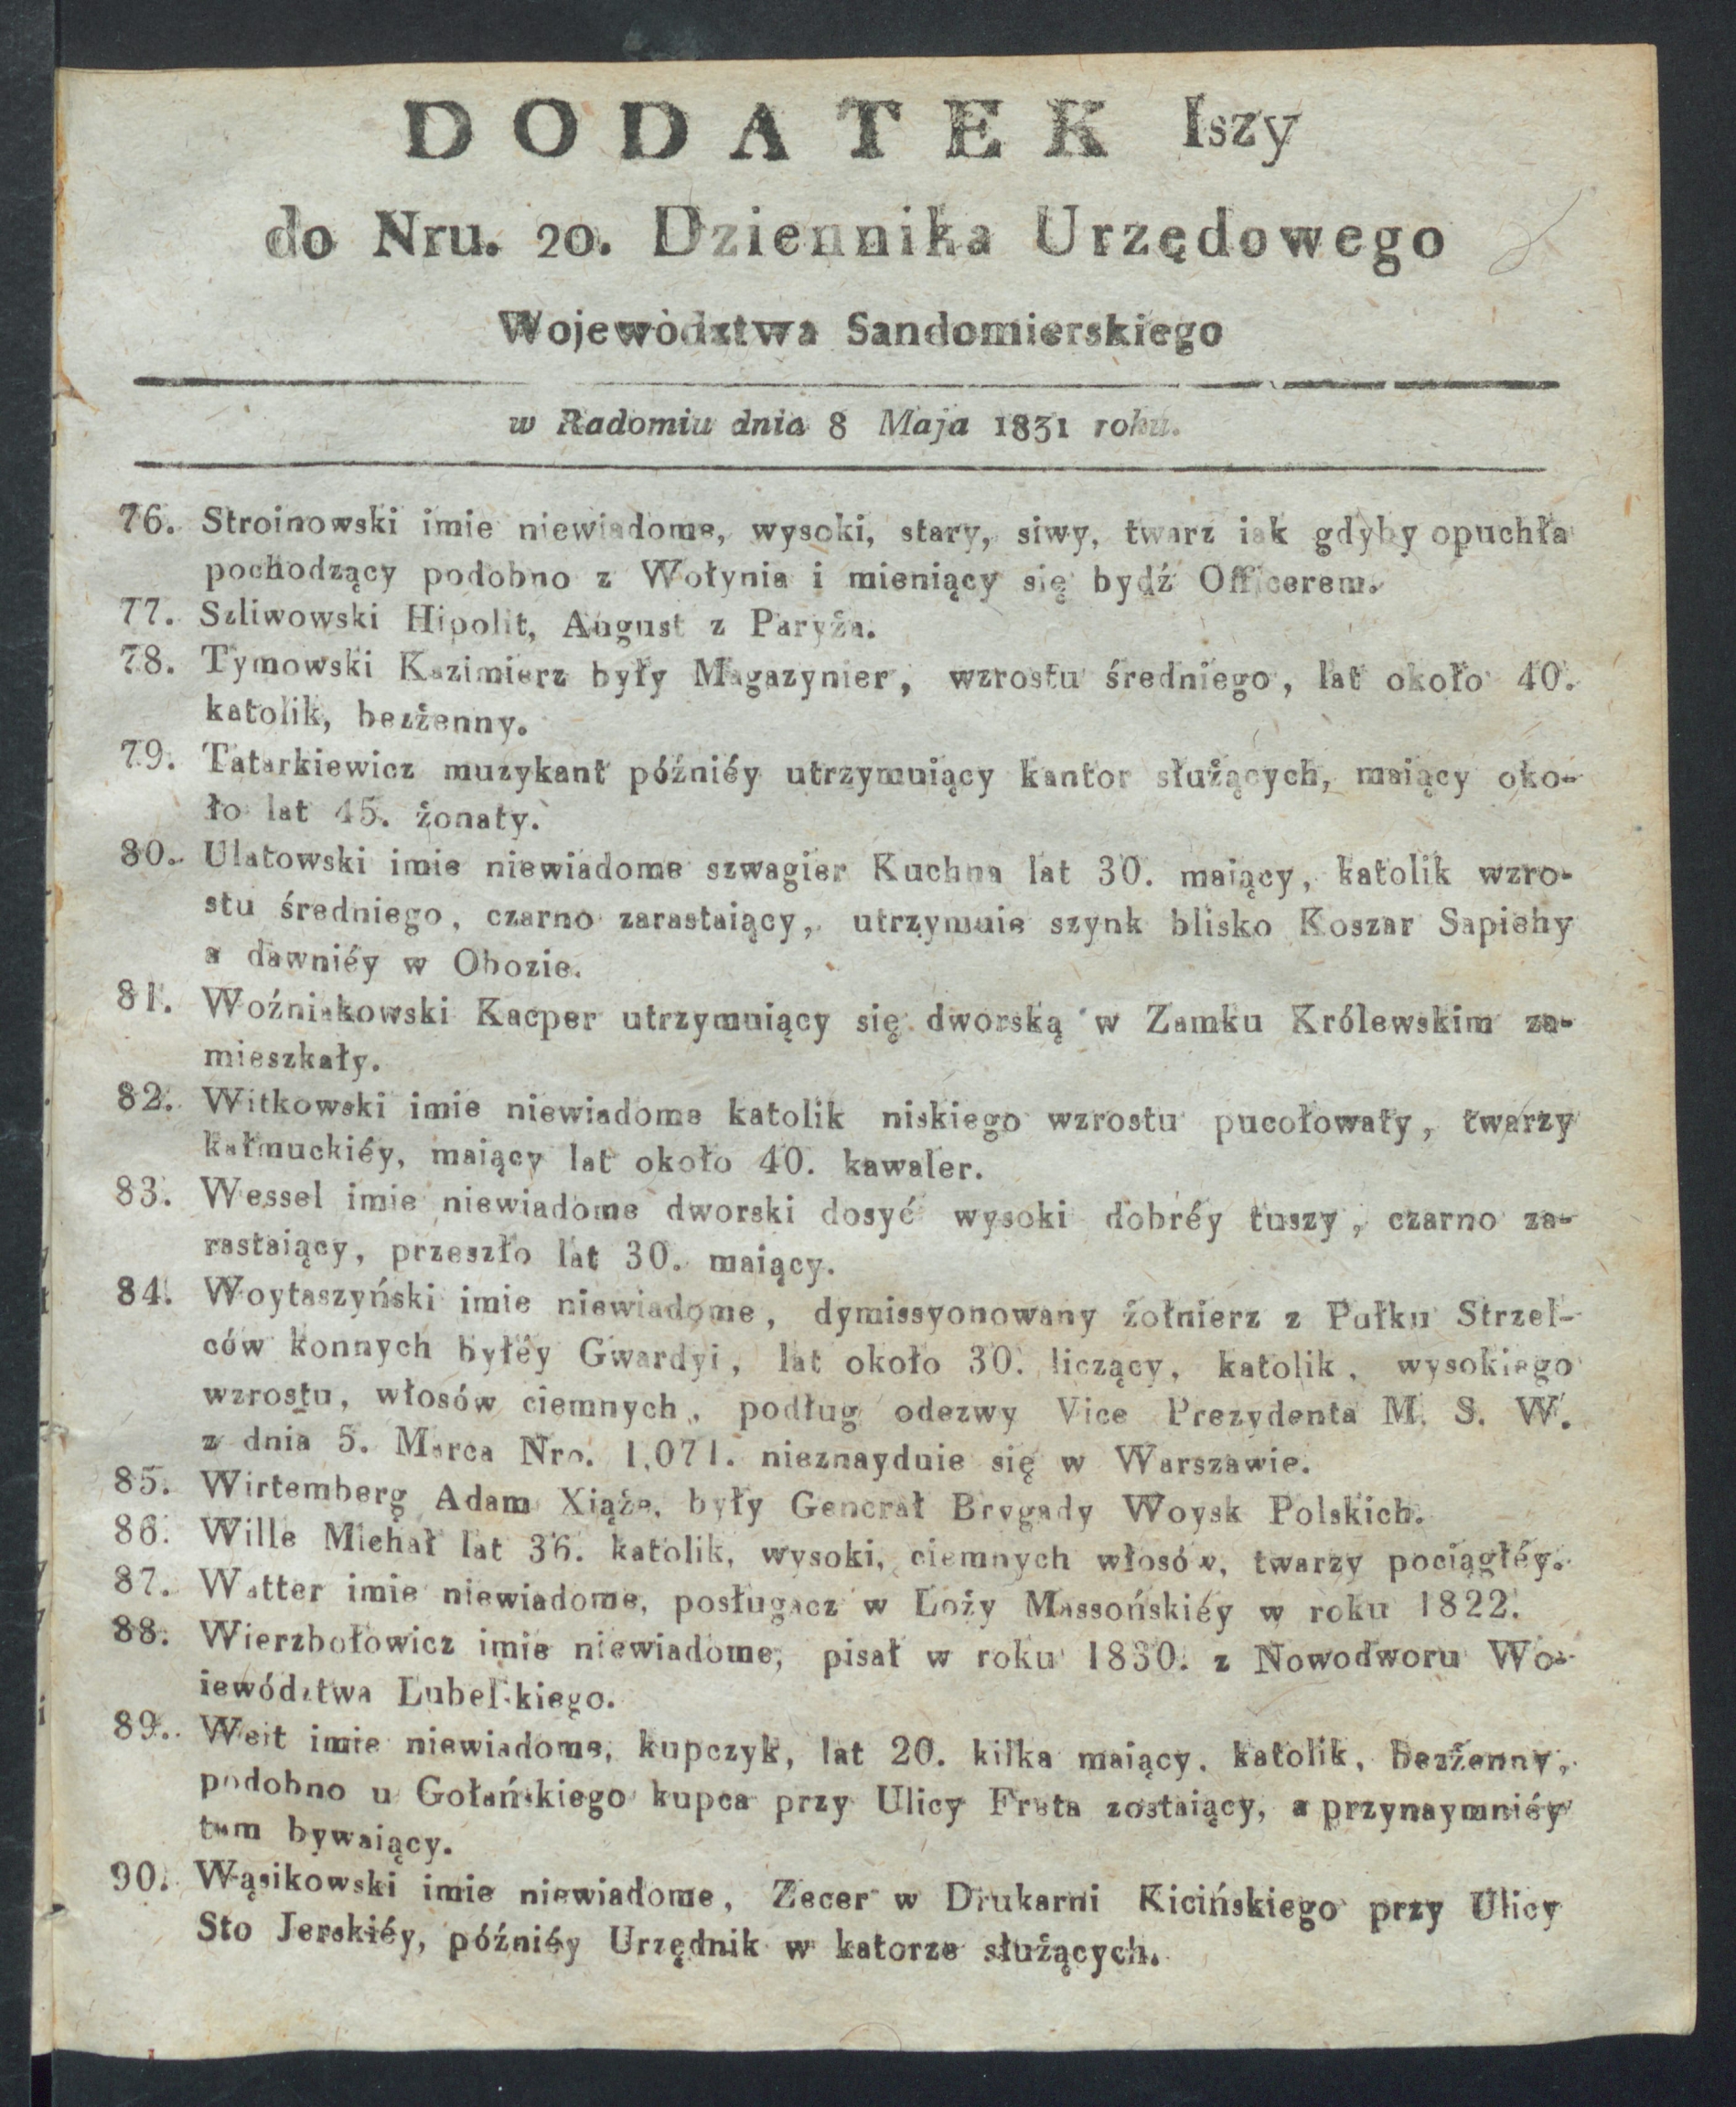 DODATEK Iszy
do Nru. 20. Dziennika Urzędowego
Wojewòdztwa Sandomierskiego
w Radomiu dnia 8 Maja 1831 roku.
76. Stroinowski imie niewiadome, wysoki, stary, siwy, twarz iak gdyby opuchła
pochodzący podobno z Wołynia i mieniący się bydź Officerem.
77. Szliwowski Hipolit, August z Paryża.
78. Tymowski Kazimierz były Magazynier, wzrostu średniego, lat około 40.
katolik, bezżenny.
79. Tatarkiewicz muzykant późniéy utrzymuiący kantor służących, maiący oko-
ło lat 45. żonaty.
80. Ulatowski imie niewiadome szwagier Kuchna lat 30. maiący, katolik wzro-
stu średniego, czarno zarastaiący, utrzymuie szynk blisko Koszar Sapiehy
a dawniéy w Obozie.
81. Woźniakowski Kacper utrzymuiący się dworską w Zamku Królewskim za-
mieszkały.
82. Witkowski imie niewiadome katolik niskiego wzrostu pucołowaty, twarzy
kałmuckiéy, maiący lat około 40. kawaler.
83. Wessel imie niewiadome dworski dosyć wysoki dobréy tuszy, czarno za-
rastaiący, przeszło lat 30. maiący.
84. Woytaszyński imie niewiadome, dymissyonowany żołnierz z Pułku Strzel-
ców konnych byłéy Gwardyi, lat około 30. liczący, katolik, wysokiego
wzrostu, włosów ciemnych, podług odezwy Vice Prezydenta M. S. W.
z dnia 5. Marca Nro. 1,071. nieznayduie się w Warszawie.
85. Wirtemberg Adam Xiąże, były Generał Brygady Woysk Polskich.
86. Wille Michał lat 36. katolik, wysoki, ciemnych włosów, twarzy pociągłéy.
87. Watter imie niewiadome, posługacz w Loży Massońskiéy w roku 1822.
88. Wierzbołowicz imie niewiadome, pisał w roku 1830. z Nowodworu Wo-
iewództwa Lubelskiego.
89. Weit imie niewiadome, kupczyk, lat 20. kilka maiący, katolik, bezżenny,
podobno u Gołańskiego kupca przy Ulicy Freta zostaiący, a przynaymniéy
tam bywaiący.
90. Wąsikowski imie niewiadome, Zecer w Drukarni Kicińskiego przy Ulicy
Sto Jerskiéy, późniéy Urzędnik w katorze służących.